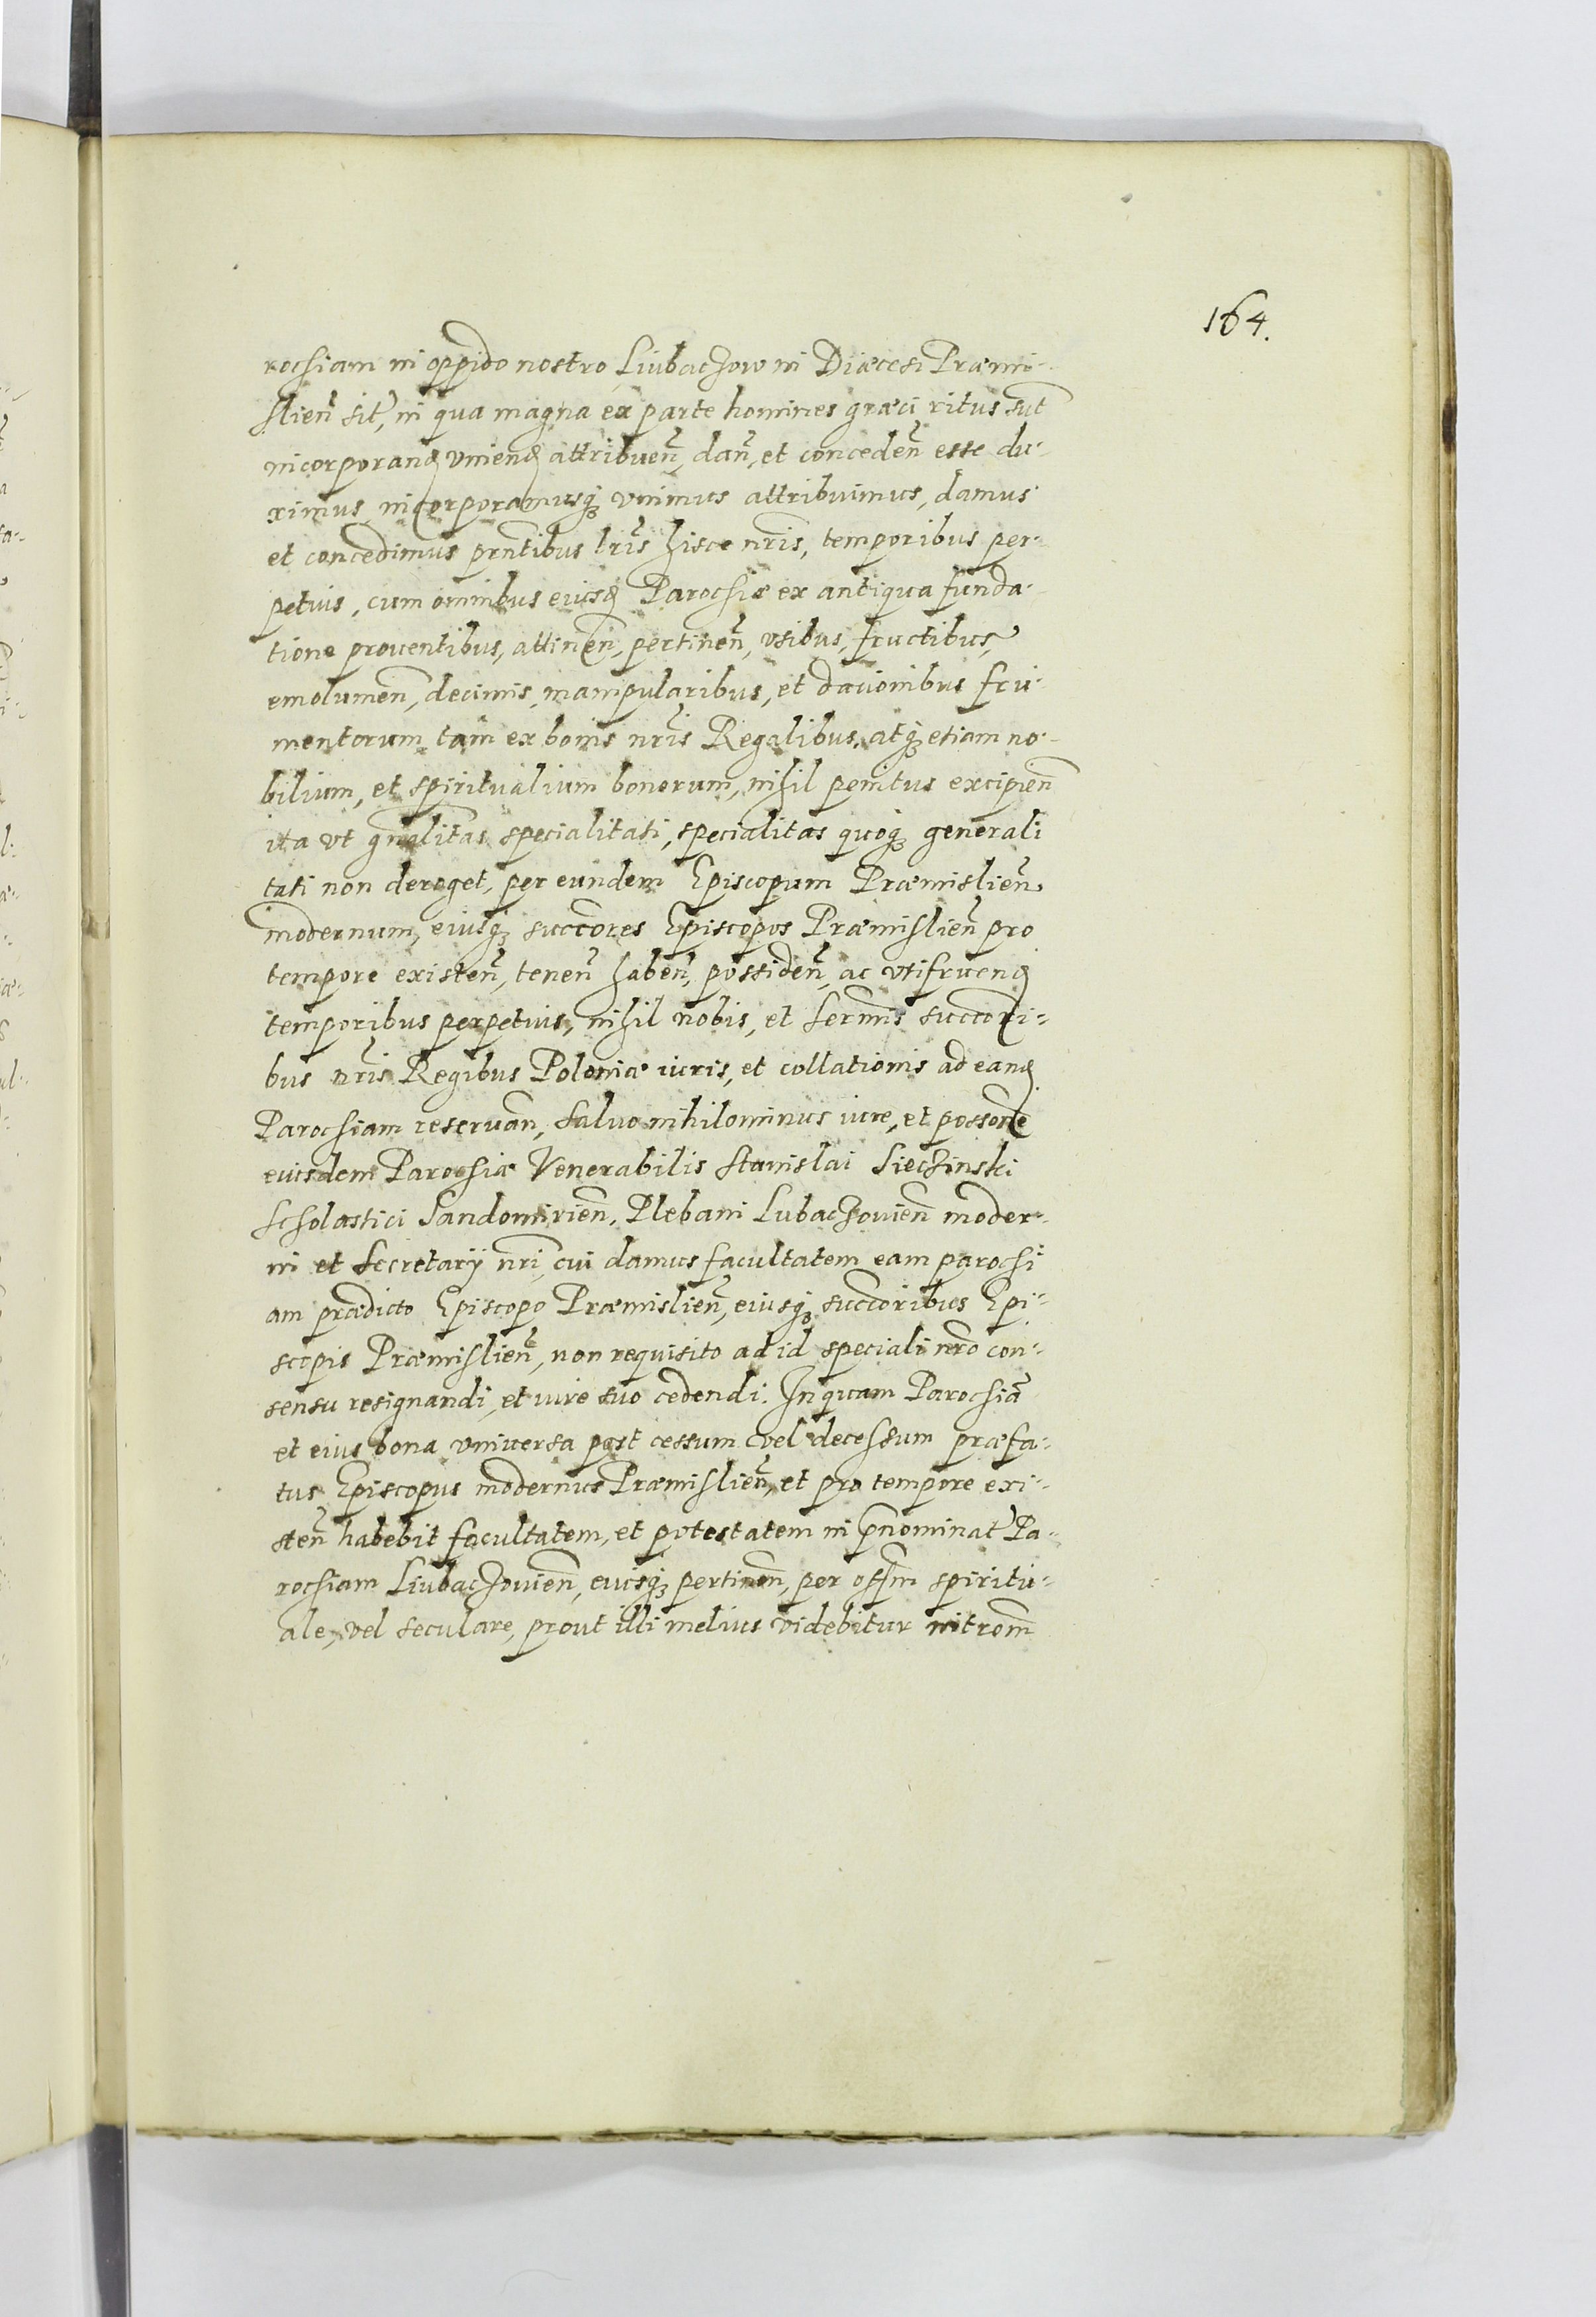 164.
rochiam in oppido nostro Liubachow in Diæcesi Præmi-
slien̄ sit̄, in qua magna ex parte homines græci ritus sūt
incorporanḍ vnienḍ attribuen̄, dan̄, et conceden̄ esse du-
ximus, incorporamusq; vnimus attribuimus, damus
et concedimus prn̄tibus lr̄is hisce nr̄is, temporibus per-
petuis, cum omnibus eiusḍ Parochiæ ex antiqua funda-
tione prouentibus, attinen̄, pertinen̄, vsibus, fructibus,
emolumen̄, decimis, manipularibus, et dacionibus fru-
mentorum tam ex bonis nr̄is Regalibus, atq; etiam no-
bilium, et spiritualium bonorum, nihil penitus excipien̄
ita vt gn̄alitas specialitati, specialitas quoq; generali
tati non deroget, per eundem Episcopum Præmislien̄
modernum, eiusq; succōres Episcopos Præmislien̄ pro
tempore existen̄, tenen̄ haben̄, possiden̄, ac vtifruenḍ
temporibus perpetuis, nihil nobis, et serm̄is succōri-
bus nr̄is Regibus Poloniæ iuris, et collationis ad eanḍ
Parochiam reseruan̄, saluo nihilominus iure, et possōne
eiusdem Parochiæ Venerabilis Stanislai Siechinski
Scholastici Sandomirien̄, Plebani Lubachouien̄ moder-
ni et Secretarij nr̄i, cui damus facultatem eam parochi
am prædicto Episcopo Præmislien̄, eiusq; succōribus Epi-
scopis Præmislien̄, non requisito ad id speciali nr̄o con-
sensu resignandi, et iure suo cedendi. In quam Parochiā
et eius bona vniuersa post cessum vel decessum præfa-
tus Episcopus modernus Præmislien̄, et pro tempore exi-
sten̄ habebit facultatem, et potestatem in p̄nominat̄ Pa-
rochiam Liubachouien̄, eiusq; pertinen̄, per off̄m spiritu-
ale, vel seculare, prout illi melius videbitur intrōm